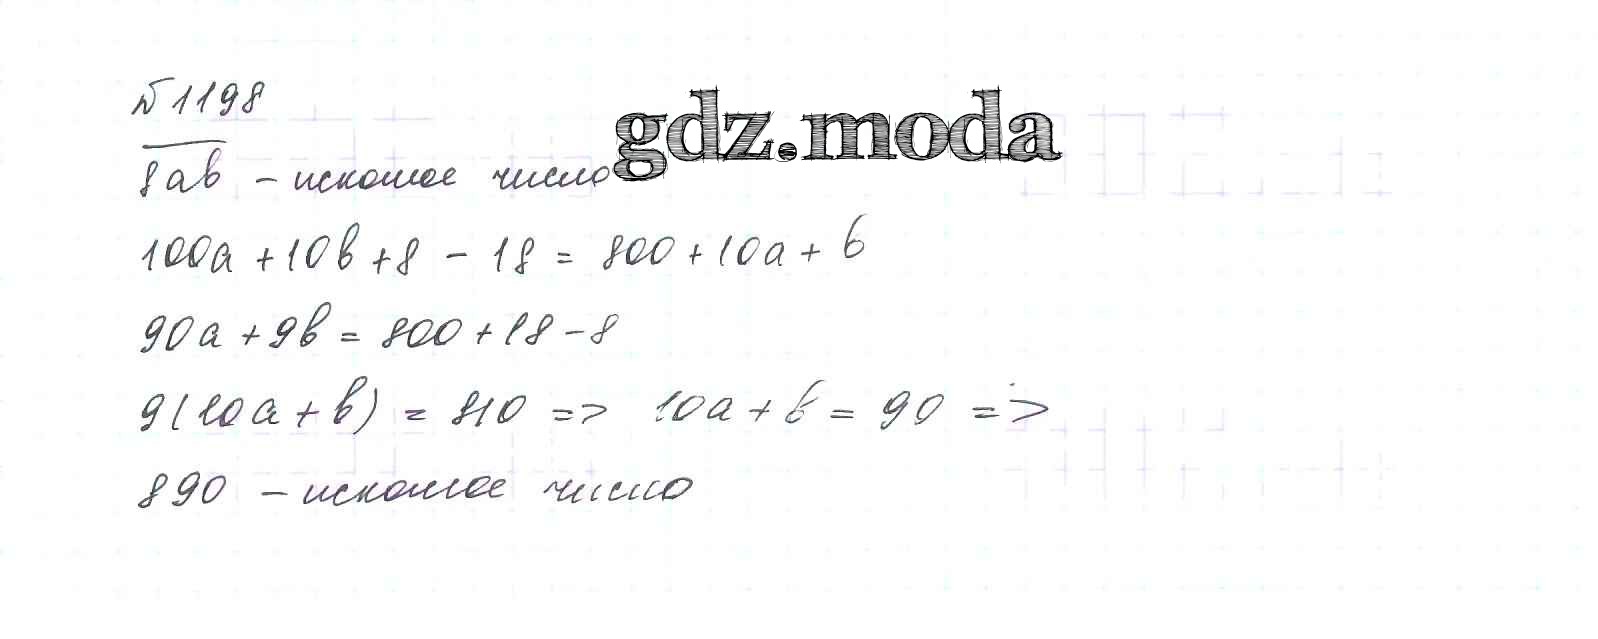 № 1198
gdz.moda
8ab – искомое число
100a + 10b + 8 - 18 = 800 + 10a + b
90a + 9b = 800 + 18 - 8
9(10a + b) = 810 => 10a + b = 90 =>
890 – искомое число